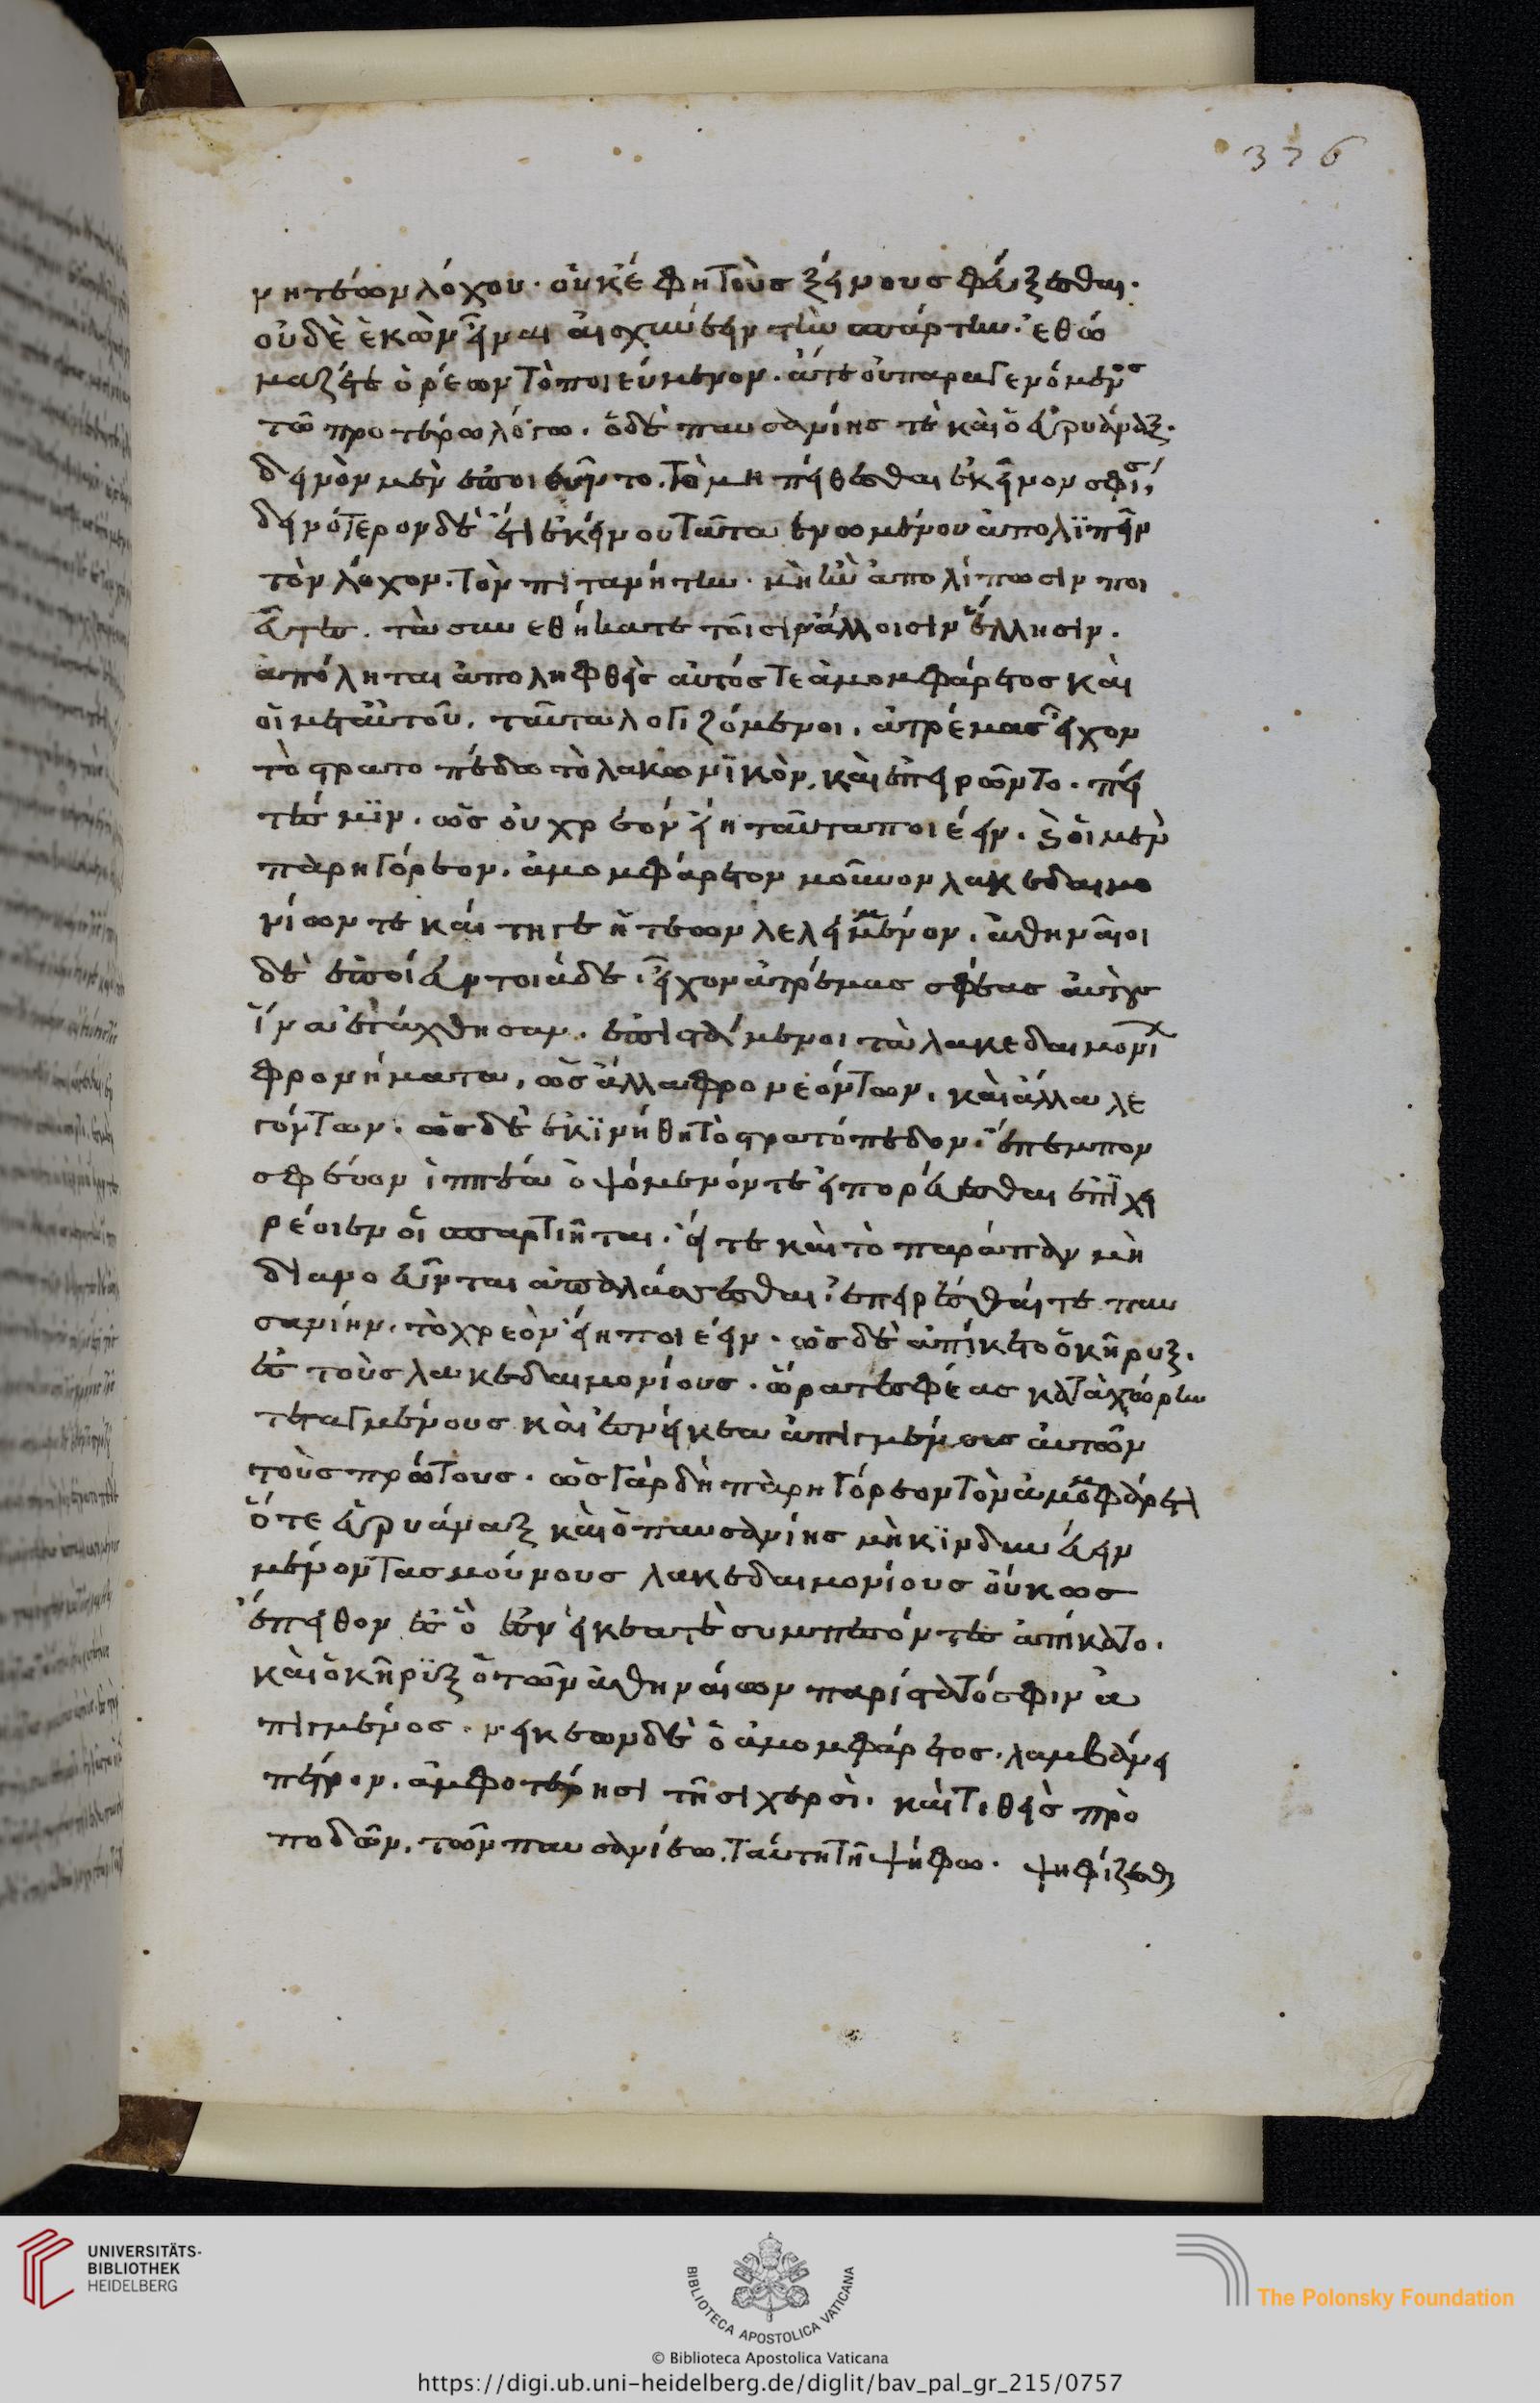 376
νητέων λόχου· οὐκ ἔφη τοὺς ξείνους φεύξεσθαι·
οὐδὲ ἑκὼν εἶναι αἰσχυνέειν τὴν σπάρτην· ἐθώ
μαζέ τε ὁρέων τὸ ποιεύμενον· ἅτε οὐ παραγενόμενος
τῶ προτέρω λόγω· ὁ δὲ παυσανίης τε καὶ ὁ εὐρυάναξ·
δεινὸν μὲν ἐποιεῦντο· τὸ μὴ πείθεσθαι ἐκεῖνον σφίσι,
δεινότερον δὲ ἔτι ἐκείνου ταῦτα ἐνωμένου ἀπολϊπεῖν
τὸν λόχον· τὸν πιτανήτην· μὴ ἢν ἀπολίπωσιν ποι
εῦντες· τὰ συνεθήκατε τοῖσιν ἄλλοισιν ἕλλησιν·
ἀπόληται ἀποληφθεὶς αὐτός τε ἀμομφάρετος καὶ
οἱ μετ' αὐτοῦ· ταῦτα λογιζόμενοι· ἀτρέμας εἶχον
τὸ στρατόπεδον τὸ λακωνϊκὸν, καὶ ἐπειρῶντο· πεί
θεν μϊν· ὡς οὐ χρεόν εἴη ταῦτα ποιέειν· καὶ οἱ μὲν
παρηγόρεον· ἀμομφάρετον μοῦνον λακεδαιμο
νίων τε καὶ τηγεητέων λελειμμένον· ἀθηναῖοι
δὲ ἐποίευν τοιάδε· εἶχον ἀτρέμας σφέας αὐτοὺς
ἵνα ἐτάχθησαν· ἐπιστάμενοι τὰ λακεδαιμονίων
φρονήματα, ὡς ἄλλα φρονεόντων, καὶ ἄλλα λε
γόντων· ὡς δὲ ἐκϊνήθη τὸ στρατόπεδον· ἔπεμπον
σφέων ἱππέα ὀψόμενόν τε εἰ πορεύεσθαι ἐπιχει
ρέοιεν οἱ σπαρτιῆται· εἴ τε καὶ τὸ παράπαν μὴ
διανοεῦνται ἀπαλλάσσεσθαι· ἐπειρέσθαι τε παυ
σανίην· τὸ χρεὸν εἴη ποιέειν· ὡς δὲ ἀπίκετο ὁ κῆρυξ·
ἐς τοὺς λακεδαιμονίους· ὥρα τέ σφεας κατὰ χώρην
τεταγμένους καὶ ἐς νείκεα ἀπιγμένους αὐτῶν
τοὺς πρώτους· ὡς γὰρ δὴ παρηγόρεον τὸν ἀμομφάρετον
ὅ τε εὐρυάναξ καὶ ὁ παυσανίης μὴ κϊνδυνεύειν
μένοντας μούνους λακεδαιμονίους οὔκως
ἔπειθον ἐς ὃ ἐς νείκεά τε συμπεσόντες ἀπίκατο·
καὶ ὁ κῆρϋξ ὁ τῶν ἀθηναίων παρίστατό σφιν ἀ
πιγμένος· νεικέων δὲ ὁ ἀμομφάρετος· λαμβάνει
πέτρον· ἀμφοτέρησι τῆσι χερσὶ· καὶ τιθεὶς πρὸ
ποδῶν· τῶν παυσανίεω· ταύτη τῆ ψήφω· ψηφίζεσθαι
UNIVERSITÄTS-
BIBLIOTHEK
HEIDELBERG
BIBLIOTECA APOSTOLICA VATICANA
The Polonsky Foundation
© Biblioteca Apostolica Vaticana
https://digi.ub.uni-heidelberg.de/diglit/bav_pal_gr_215/0757